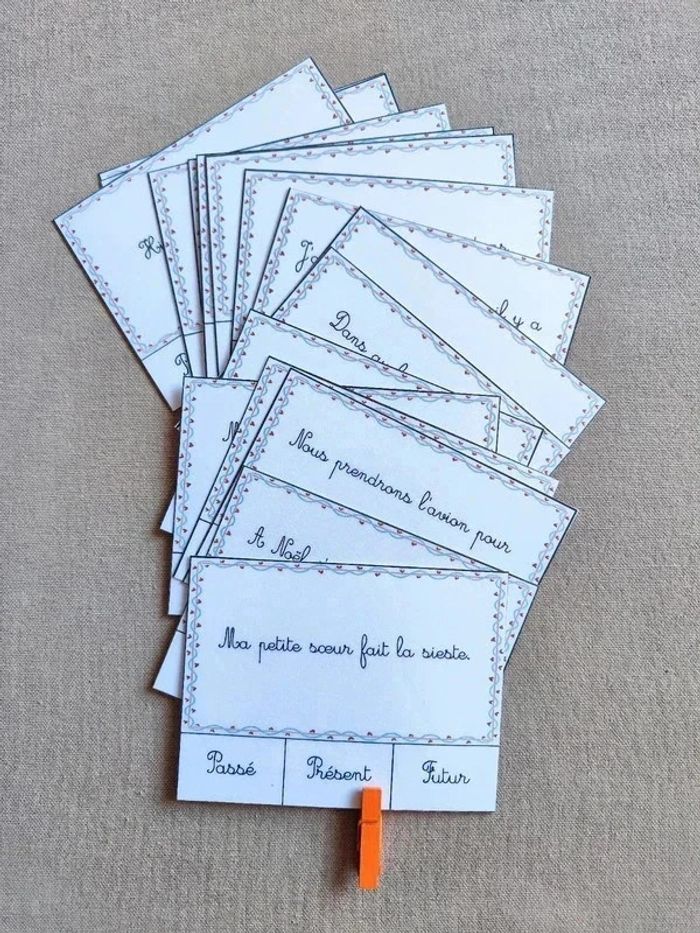 J'a
l y a
Dans
Nous prendrons l'avion pour
A Noël
Ma petite sœur fait la sieste.
Passé Présent Futur